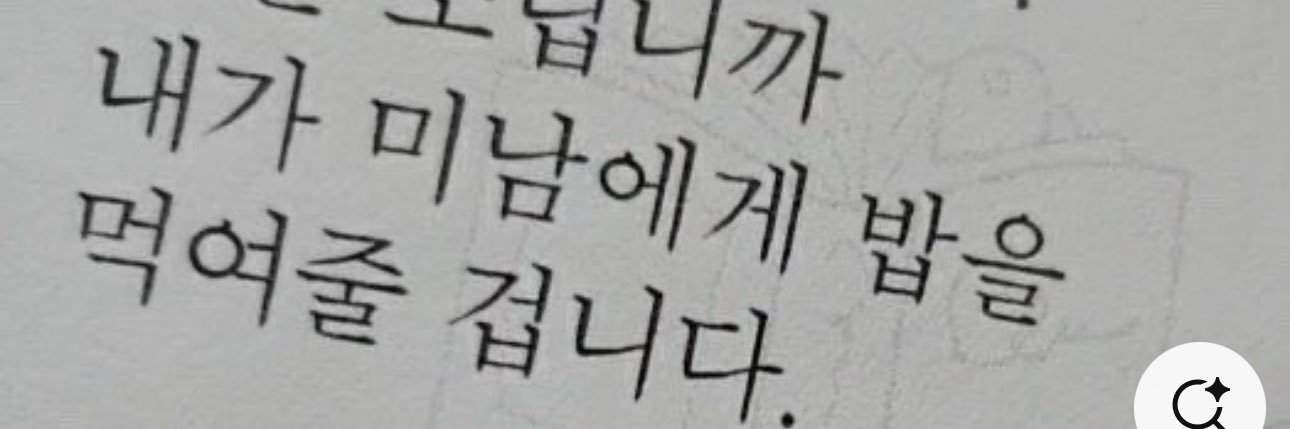 내가 미남에게 밥을
먹여줄 겁니다.